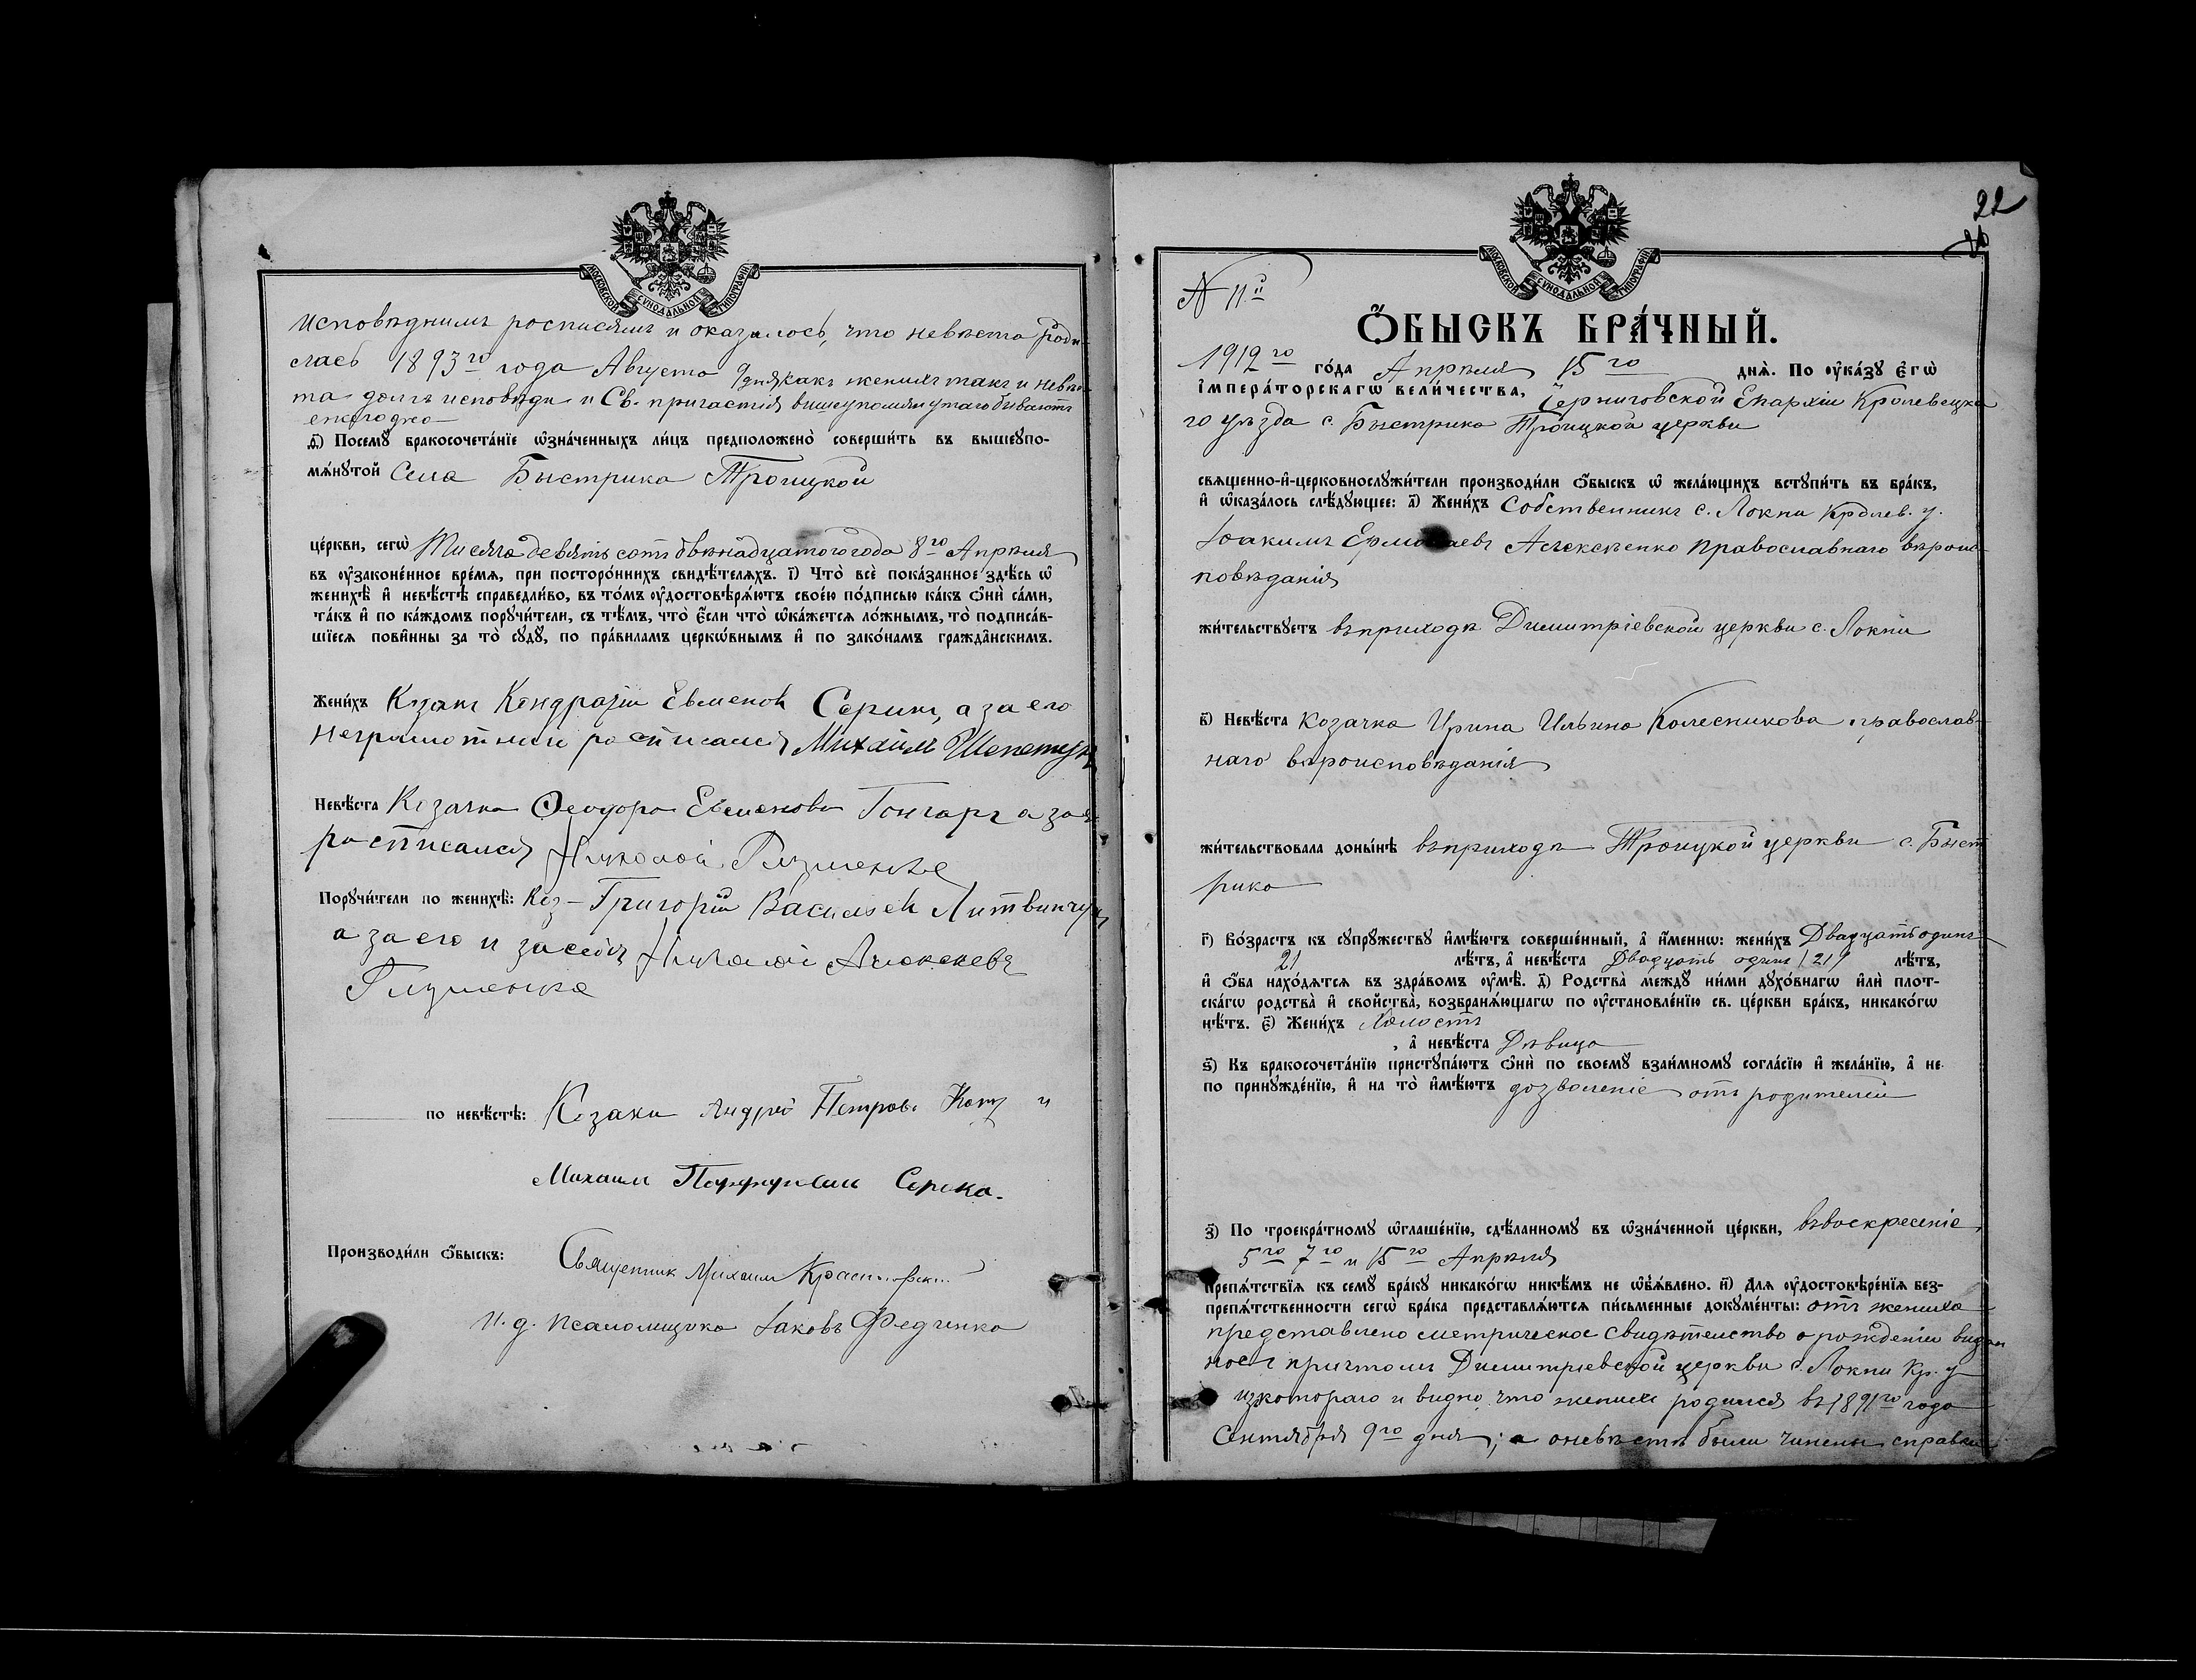 МОСКОВСКОЙ СѴНОДАЛЬНОЙ ТИПОГРАФІИ
исповѣднымъ росписямъ и оказалось, что невѣста роди-
лась 1893го года Августа 9 дня какъ женихъ такъ и невѣс-
та долгъ исповѣди и Св. причастія вышеупомянутаго бываютъ
ежегодно
Ѳ҃) Посемꙋ̀ бракосочета́нїе ѡ҆зна́ченныхъ ли́цъ предположено̀ соверши́ть въ вышеꙋпо-
мѧ́нꙋтой Села Быстрика Троицкой
це́ркви, сегѡ̀ Тысяча девятьсотъ двѣнадцатого года 8го Апрѣля
въ ᲂу҆зако́ненное вре́мѧ, при посторо́ннихъ свидѣ́телѧхъ. і҃) Что̀ всѐ пока́занное здѣ́сь ѡ҆
женихѣ̀ и҆ невѣ́стѣ справедли́во, въ то́мъ ᲂу҆достовѣрѧ́ютъ свое́ю по́дписью ка́къ ѻ҆нѝ са́ми,
та́къ и҆ по ка́ждомъ порꙋчи́тели, съ тѣ́мъ, что̀ є҆́сли что̀ ѡ҆ка́жетсѧ ло́жнымъ, то̀ подписа́в-
шїесѧ пови́нны за то̀ сꙋдꙋ̀, по пра́виламъ церкѡ́внымъ и҆ по зако́намъ гражда́нскимъ.
Жени́хъ Козакъ Кондратій Евменовъ Серикъ, а за его
неграмотнаго росписался Михаилъ Шепетунъ
Невѣ́ста Козачка Ѳеодора Евменова Гончаръ а за ея
росписался Николай Глушенко
Порꙋчи́тели по женихѣ̀: Коз- Григорій Васильевъ Литвинчукъ
а за его и за себя Николай Алексеевъ
Глушенко
по невѣ́стѣ: Козаки Андрей Петровъ Коть и
Михаилъ Серека.
Производи́ли ѻ҆́быскъ: Священник Михаилъ
И.д. псаломщика Іаковъ Федченко
22
№ 11й
МОСКОВСКОЙ СѴНОДАЛЬНОЙ ТИПОГРАФІИ
Ѻ҆́БЫСКЪ БРА́ЧНЫЙ.
1912го го́да Апрѣля 15го днѧ̀. По ᲂу҆ка́зꙋ Є҆гѡ̀
І҆мпера́торскагѡ вели́чества, Черниговской Епархіи Кролевецка-
го уѣзда с. Быстрика Троицкой церкви
свѧще́нно-и҆-церковнослꙋжи́тели производи́ли ѻ҆́быскъ ѡ҆ жела́ющихъ встꙋпи́ть въ бра́къ,
и҆ ѡ҆каза́лось слѣ́дꙋющее: а҃) Жени́хъ Собственникъ с. Локни Кролев. у.
Іоакимъ Ермолаевъ Алексѣенко православнаго вѣроис-
повѣданія
жи́тельствꙋетъ въ приходѣ Димитріевской церкви с. Локни
в҃) Невѣ́ста козачка Ирина Ильина Колесникова православ-
наго вѣроисповѣданія
жи́тельствовала доны́нѣ въ приходѣ Троицкой церкви с. Быст-
рика
г҃) Во́зрастъ къ сꙋпрꙋ́жествꙋ и҆мѣ́ютъ соверше́нный, а҆ и҆́менно: жени́хъ Двадцать одинъ
21 лѣ́тъ, а҆ невѣ́ста Двадцать одинъ /21/ лѣ́тъ,
и҆ ѻ҆́ба нахо́дѧтсѧ въ здра́вомъ ᲂу҆мѣ̀. д҃) Родства̀ междꙋ̀ ни́ми дꙋхо́внагѡ и҆лѝ плот-
ска́гѡ родства̀ и҆ сво́йства, возбранѧ́ющагѡ по ᲂу҆становле́нїю св. це́ркви бра́къ, никако́гѡ
нѣ́тъ. є҃) Жени́хъ Холостъ
, а҆ невѣ́ста Дѣвица
ѕ҃) Къ бракосочета́нїю пристꙋпа́ютъ ѻ҆нѝ по своемꙋ̀ взаи́мномꙋ согла́сїю и҆ жела́нїю, а҆ не
по принꙋжде́нїю, и҆ на то̀ и҆мѣ́ютъ дозволеніе отъ родителей
з҃) По троекра́тномꙋ ѡ҆глаше́нїю, сдѣ́ланномꙋ въ ѡ҆зна́ченной це́ркви, въ воскресеніе
5го 7го и 15го Апрѣля
препѧ́тствїѧ къ семꙋ̀ бра́кꙋ никако́гѡ никѣ́мъ не ѡ҆б̾ѧ́влено. и҃) Длѧ ᲂу҆достовѣре́нїѧ без-
препѧ́тственности сегѡ̀ бра́ка представлѧ́ютсѧ пи́сьменные докꙋме́нты: отъ жениха
представлено метрическое свидѣтельство о рожденіи выдан-
ное причтомъ Димитріевской церкви с. Локни Кр. у
изъ котораго и видно что женихъ родился въ 1891го года
Сентября 9го дня; а о невѣстѣ были чинены справки